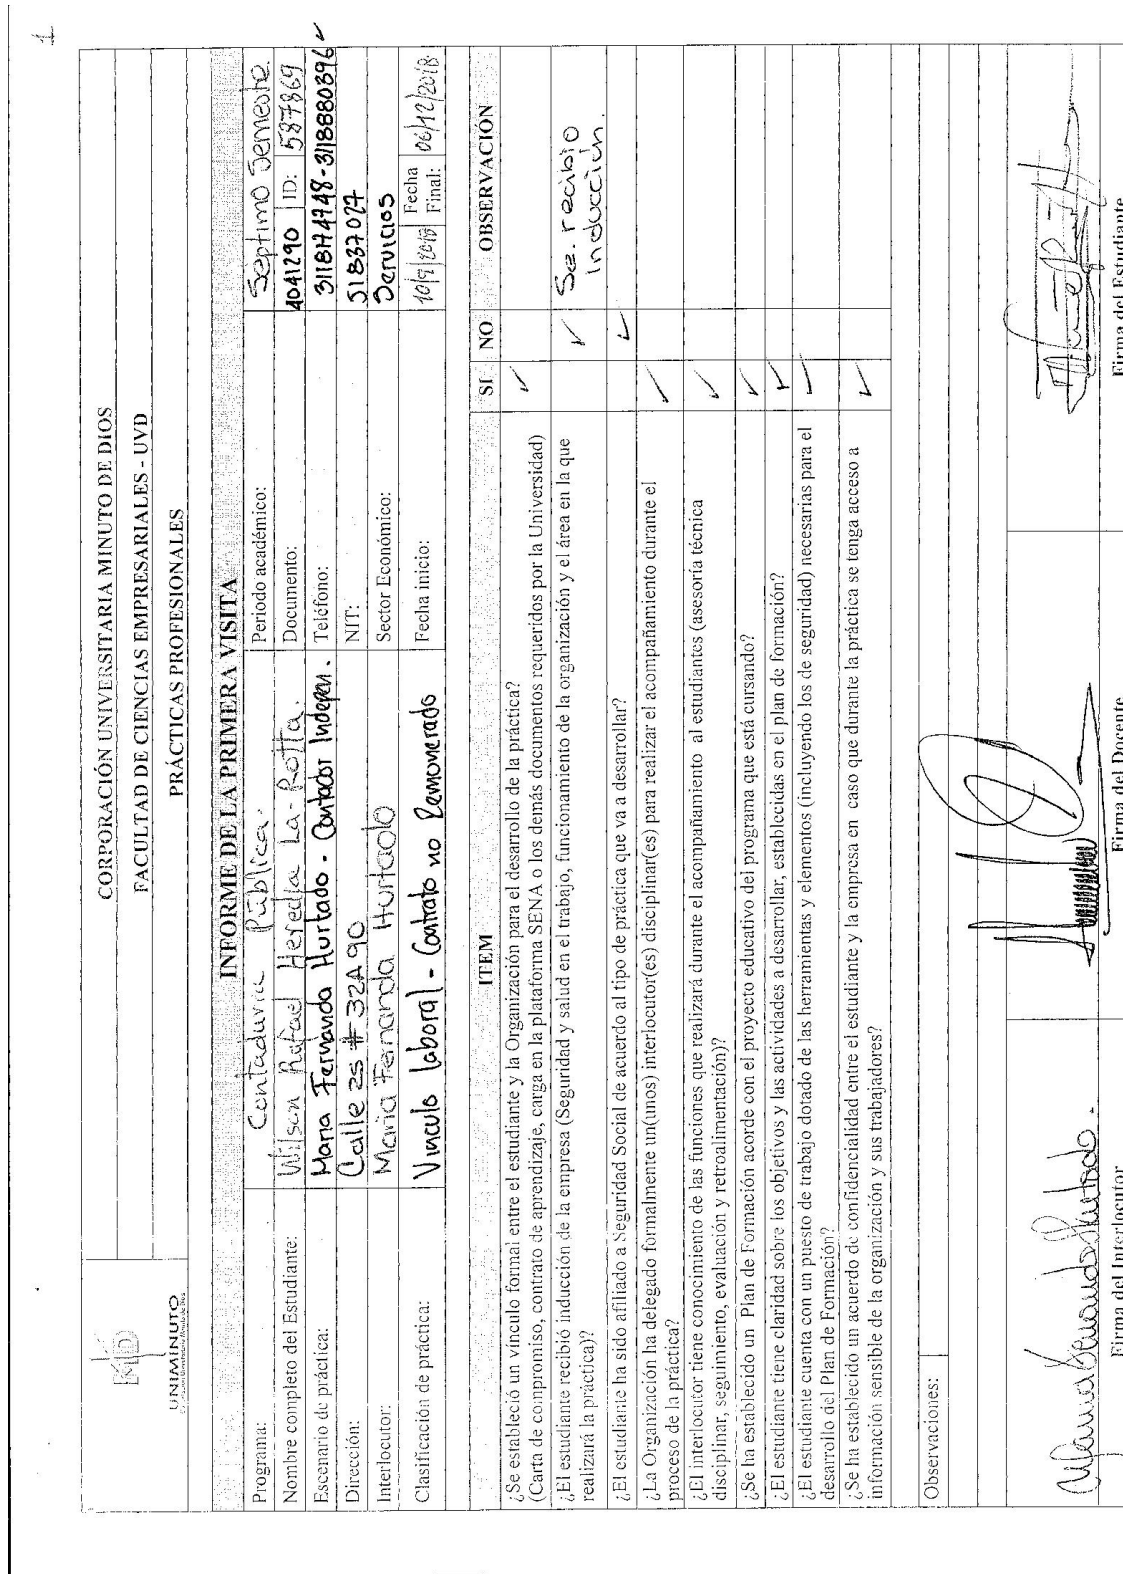 1
UNIMINUTO
Corporación Universitaria Minuto de Dios
CORPORACIÓN UNIVERSITARIA MINUTO DE DIOS
FACULTAD DE CIENCIAS EMPRESARIALES - UVD
PRÁCTICAS PROFESIONALES
INFORME DE LA PRIMERA VISITA
Programa: Contaduria Pública. Periodo académico: Septimo Semestre.
Nombre completo del Estudiante: Wilson Rafael Heredia La-Rotta. Documento: 4041290 ID: 587869
Escenario de práctica: Maria Fernanda Hurtado - Contador Indepen. Teléfono: 3118174748-3118880396 ✓
Dirección: Calle 25 # 32A90 NIT: 51837027
Interlocutor: Maria Fernanda Hurtado Sector Económico: Servicios
Clasificación de práctica: Vinculo laboral - Contrato no Remunerado Fecha inicio: 10/9/2018 Fecha Final: 06/12/2018
ITEM SI NO OBSERVACIÓN
¿Se estableció un vínculo formal entre el estudiante y la Organización para el desarrollo de la práctica? ✓
(Carta de compromiso, contrato de aprendizaje, carga en la plataforma SENA o los demás documentos requeridos por la Universidad)
¿El estudiante recibió inducción de la empresa (Seguridad y salud en el trabajo, funcionamiento de la organización y el área en la que ✓ recibio
realizará la práctica)? Inducción.
¿El estudiante ha sido afiliado a Seguridad Social de acuerdo al tipo de práctica que va a desarrollar? ✓
¿La Organización ha delegado formalmente un(unos) interlocutor(es) disciplinar(es) para realizar el acompañamiento durante el ✓
proceso de la práctica?
¿El interlocutor tiene conocimiento de las funciones que realizará durante el acompañamiento al estudiantes (asesoría técnica ✓
disciplinar, seguimiento, evaluación y retroalimentación)?
¿Se ha establecido un Plan de Formación acorde con el proyecto educativo del programa que está cursando? ✓
¿El estudiante tiene claridad sobre los objetivos y las actividades a desarrollar, establecidas en el plan de formación? ✓
¿El estudiante cuenta con un puesto de trabajo dotado de las herramientas y elementos (incluyendo los de seguridad) necesarias para el ✓
desarrollo del Plan de Formación?
¿Se ha establecido un acuerdo de confidencialidad entre el estudiante y la empresa en caso que durante la práctica se tenga acceso a ✓
información sensible de la organización y sus trabajadores?
Observaciones:
Maria Fernanda Hurtado.
Firma del Interlocutor Firma del Docente Firma del Estudiante